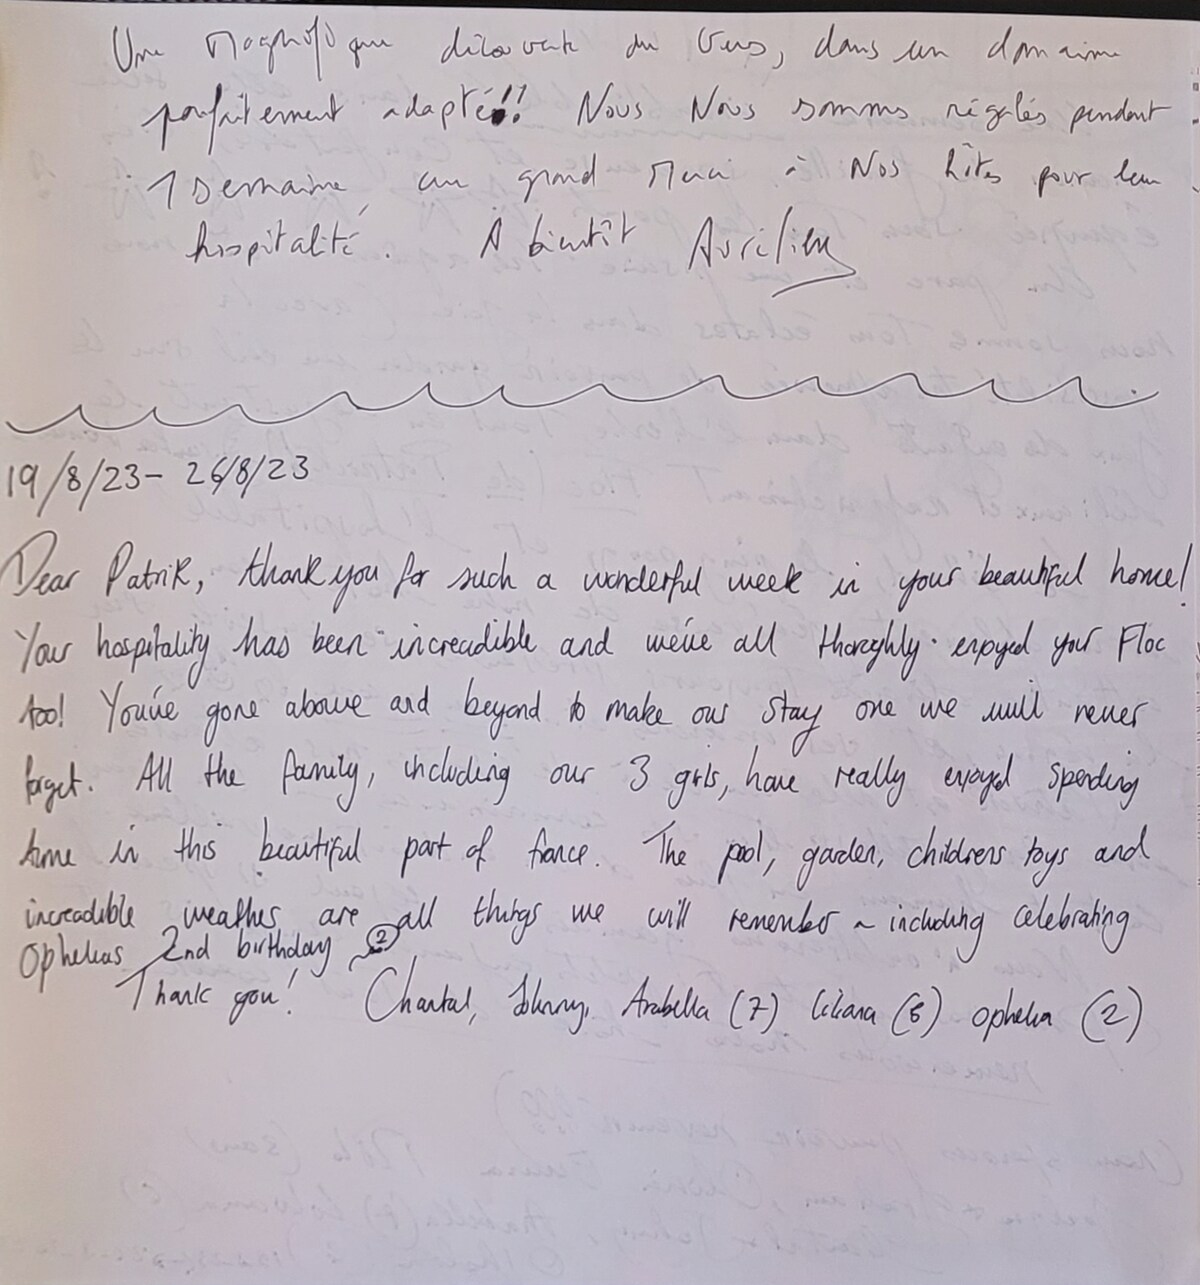 Une Magnifique découverte du Gers, dans un domaine
parfaitement adapté!! Nous Nous sommes régalés pendant
1 semaine, un grand Merci à Nos hôtes pour leur
hospitalité. A bientôt Aurélien
19/8/23 - 26/8/23
Dear Patrik, thank you for such a wonderful week in your beautiful home!
Your hospitality has been increadible and we've all thoroghly enjoyed your Floc
too! You've gone above and beyond to make our stay one we will never
forget. All the family, including our 3 girls, have really enjoyed spending
time in this beautiful part of france. The pool, garden, childrens toys and
increadible weather are all things we will remember ~ including celebrating
Ophelias 2nd birthday 2
Thank you! Chantal, Johnny, Arabella (7) Liliana (5) Ophelia (2)